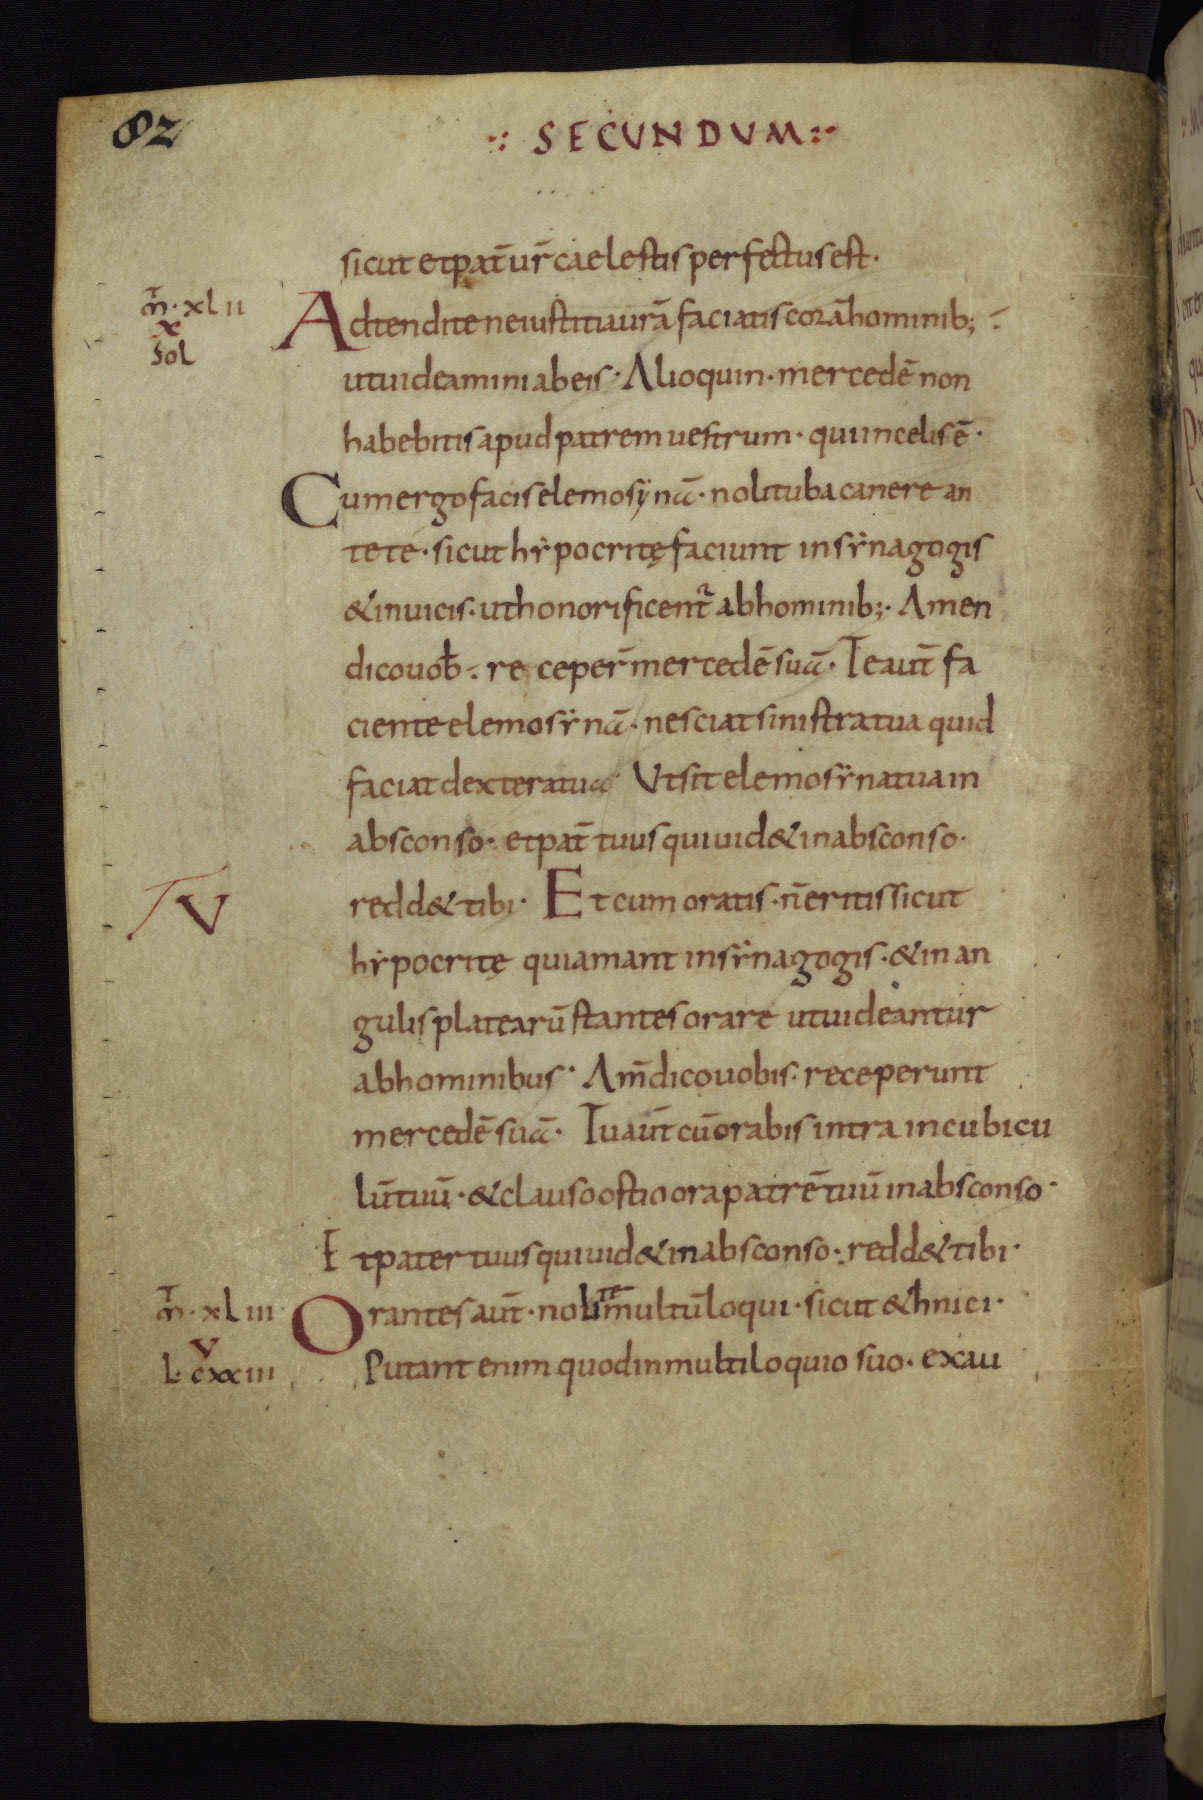 82
·: SECUNDUM :·
sicut et pat̄ ur̄ caelestis perfectus est·
m̄· xlii
x
Sol
Adtendite ne iustitia urā faciatis corā hominib;
ut uideamini ab eis· Alioquin· mercedē non
habebitis apud patrem uestrum· qui in celis ē·
Cum ergo facis elemosẏnā· noli tuba canere an
te te· sicut hẏpocritę faciunt in sẏnagogis
& in uicis· ut honorificent᷑ ab hominib;· Amen
dico uob̄· receper̄ mercedē suā· Te aut̄ fa
ciente elemosẏnā· nesciat sinistra tua quid
faciat dextera tua· Ut sit elemosẏna tua in
absconso· et pat̄ tuus qui uid& in absconso·
V
redd& tibi· Et cum oratis· n̄ eritis sicut
hẏpocritę qui amant in sẏnagogis· & in an
gulis platearū stantes orare ut uideantur
ab hominibus· Am̄ dico uobis· receperunt
mercedē suā· Tu aut̄ cū orabis intra in cubicu
lū tuū· & clauso ostio ora patrē tuū in absconso·
Et pater tuus qui uid& in absconso· redd& tibi·
m̄· xliii
v
L· cxxiii
Orantes aut̄· nolite multū loqui· sicut &hnici·
Putant enim quod in multiloquio suo· exau